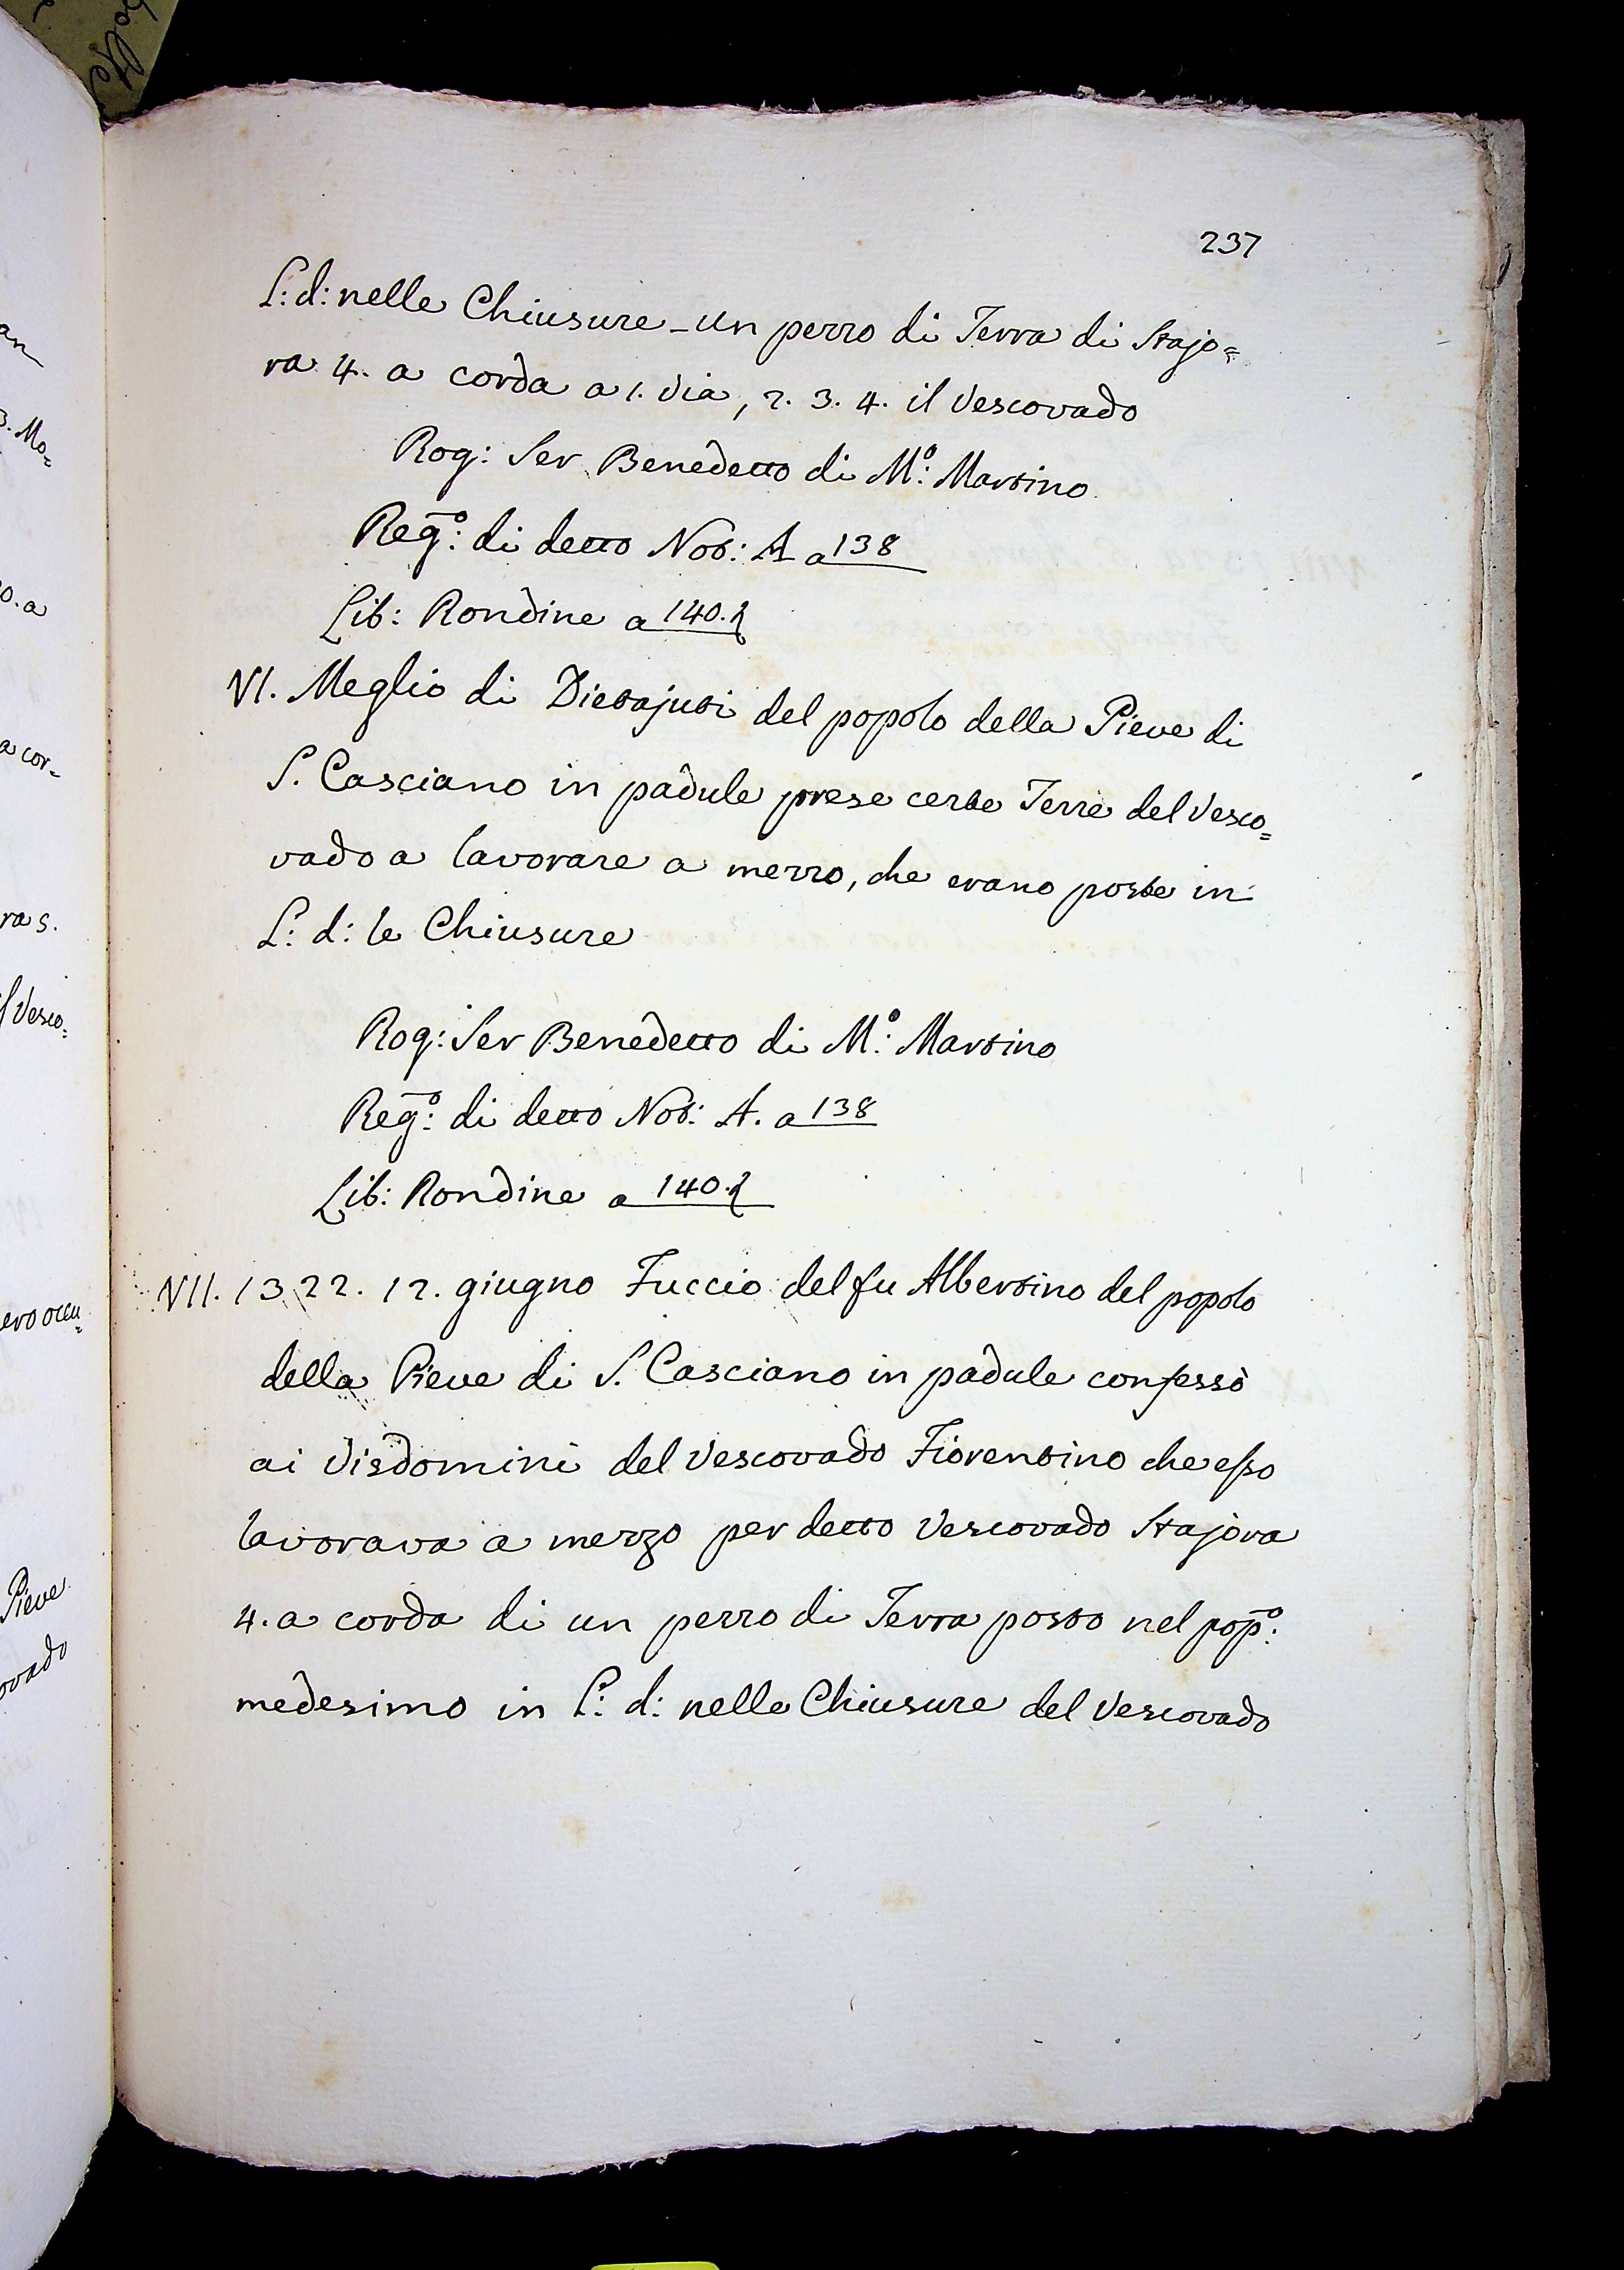 237
L: d: nelle Chiusure - Un pezzo di Terra di Stajo=
ra 4. a corda a 1. Via, 2. 3. 4. il Vescovado
Rog: Ser Benedetto di M.º: Martino
Reg.º: di detto Not: A a 138
Lib: Rondine a 140.
VI. Meglio di Dietajuti del popolo della Pieve di
S. Casciano in padule prese certe Terre del Vesco=
vado a lavorare a mezzo, che erano poste in
L: d: le Chiusure
Rog: Ser Benedetto di M.º: Martino
Reg.º: di detto Not: A. a 138
Lib: Rondine a 140.
VII. 1322. 12. giugno Fuccio del fu Albertino del popolo
della Pieve di S. Casciano in padule confessò
ai Visdomini del Vescovado Fiorentino che esso
lavorava a mezzo per detto Vescovado Stajora
4. a corda di un pezzo di Terra posto nel pop.º:
medesimo in L: d: nelle Chiusure del Vescovado